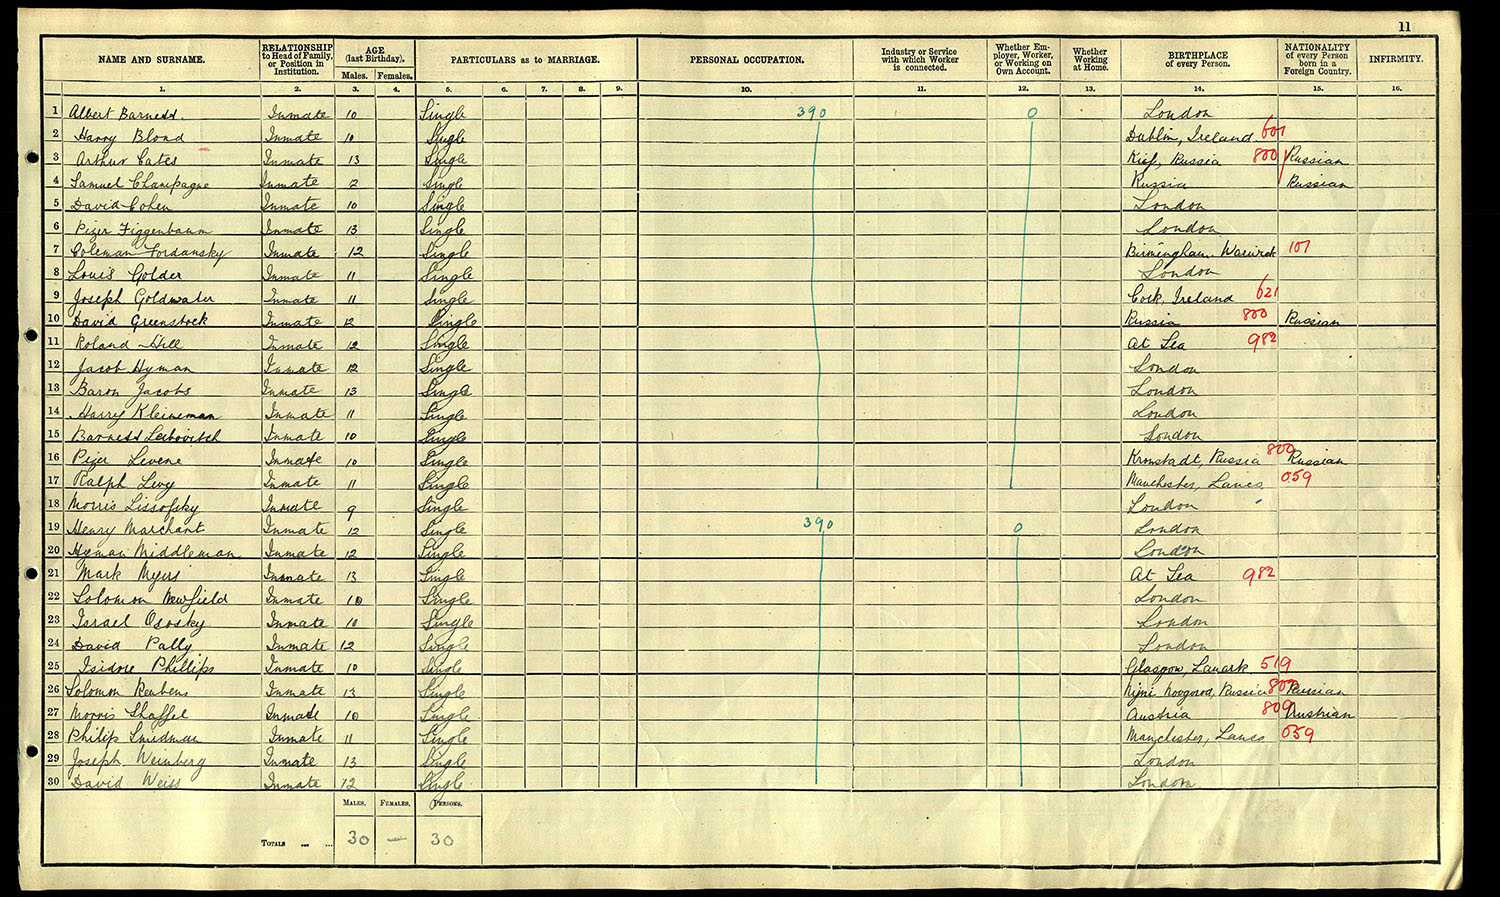 11
NAME AND SURNAME. RELATIONSHIP to Head of Family, or Position in Institution. AGE (last Birthday). Males. Females. PARTICULARS as to MARRIAGE. PERSONAL OCCUPATION. Industry or Service with which Worker is connected. Whether Employer, Worker, or Working on Own Account. Whether Working at Home. BIRTHPLACE of every Person. NATIONALITY of every Person born in a Foreign Country. INFIRMITY.
1. 2. 3. 4. 5. 6. 7. 8. 9. 10. 11. 12. 13. 14. 15. 16.
1 Albert Barness. Inmate 10 Single 390 0 London
2 Harry Blond Inmate 10 Single Dublin, Ireland. 601
3 Arthur Cates Inmate 13 Single Kief, Russia 800 Russian
4 Samuel Champagne Inmate 2 Single Russia Russian
5 David Cohen Inmate 10 Single London
6 Pizer Figgenbaum Inmate 13 Single London
7 Coleman Fordansky Inmate 12 Single Birmingham. Warwick 107
8 Louis Golder Inmate 11 Single London
9 Joseph Goldwater Inmate 11 Single Cork, Ireland 621
10 David Greenstock Inmate 12 Single Russia 800 Russian
11 Roland Hill Inmate 12 Single At Sea 982
12 Jacob Hyman Inmate 12 Single London
13 Baron Jacobs Inmate 13 Single London
14 Harry Kleineman Inmate 11 Single London
15 Barness Leibovitch Inmate 10 Single London
16 Pizer Levene Inmate 10 Single Kronstadt, Russia 800 Russian
17 Ralph Levy Inmate 11 Single Manchester, Lancs 059
18 Morris Lissofsky Inmate 9 Single London
19 Henry Marchant Inmate 12 Single 390 0 London
20 Hyman Middleman Inmate 12 Single London
21 Mark Myers Inmate 13 Single At Sea 982
22 Solomon Newfield Inmate 10 Single London
23 Israel Ososky Inmate 10 Single London
24 David Pally Inmate 12 Single London
25 Isidore Phillips Inmate 10 Single Glasgow, Lanark 519
26 Solomon Reubens Inmate 13 Single Nijni Novgorod, Russia 800 Russian
27 Morris Shaffel Inmate 10 Single Austria 809 Austrian
28 Philip Smidman Inmate 11 Single Manchester, Lancs 059
29 Joseph Weinberg Inmate 13 Single London
30 David Weiss Inmate 12 Single London
MALES. FEMALES. PERSONS.
TOTALS ... ... 30 — 30